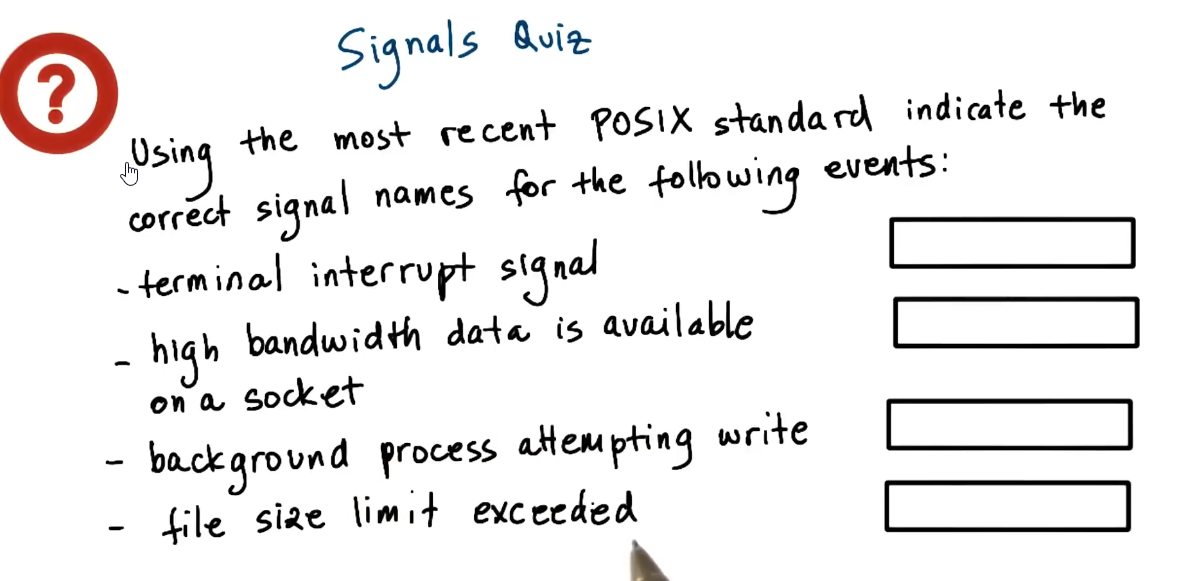 ?
Signals Quiz
Using the most recent POSIX standard indicate the
correct signal names for the following events:
- terminal interrupt signal
- high bandwidth data is available
on a socket
- background process attempting write
- file size limit exceeded